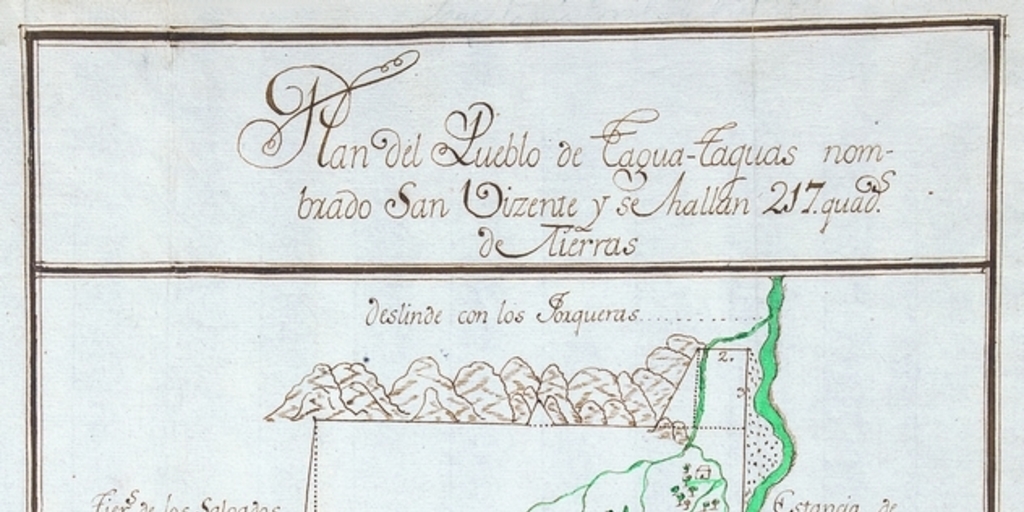 Plan del Pueblo de Tagua-Taguas nom-
brado San Vizente y se hallan 217. quad.s
de Tierras
deslinde con los Jorqueras
2.
3.
Tier.s de los Salgados
Estancia de